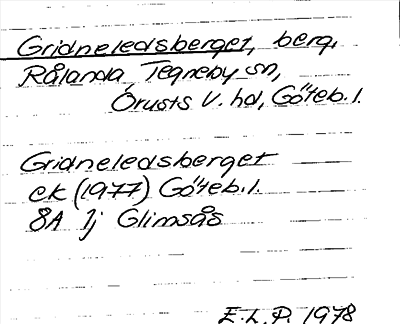 Gridneledsberget, berg,
Rålanda, Tegneby sn,
Orusts v. hd, Göteb. l.
Gridneledsberget
ek (1977) Göteb. l.
8A 1j Glimsås
E.L.P. 1978